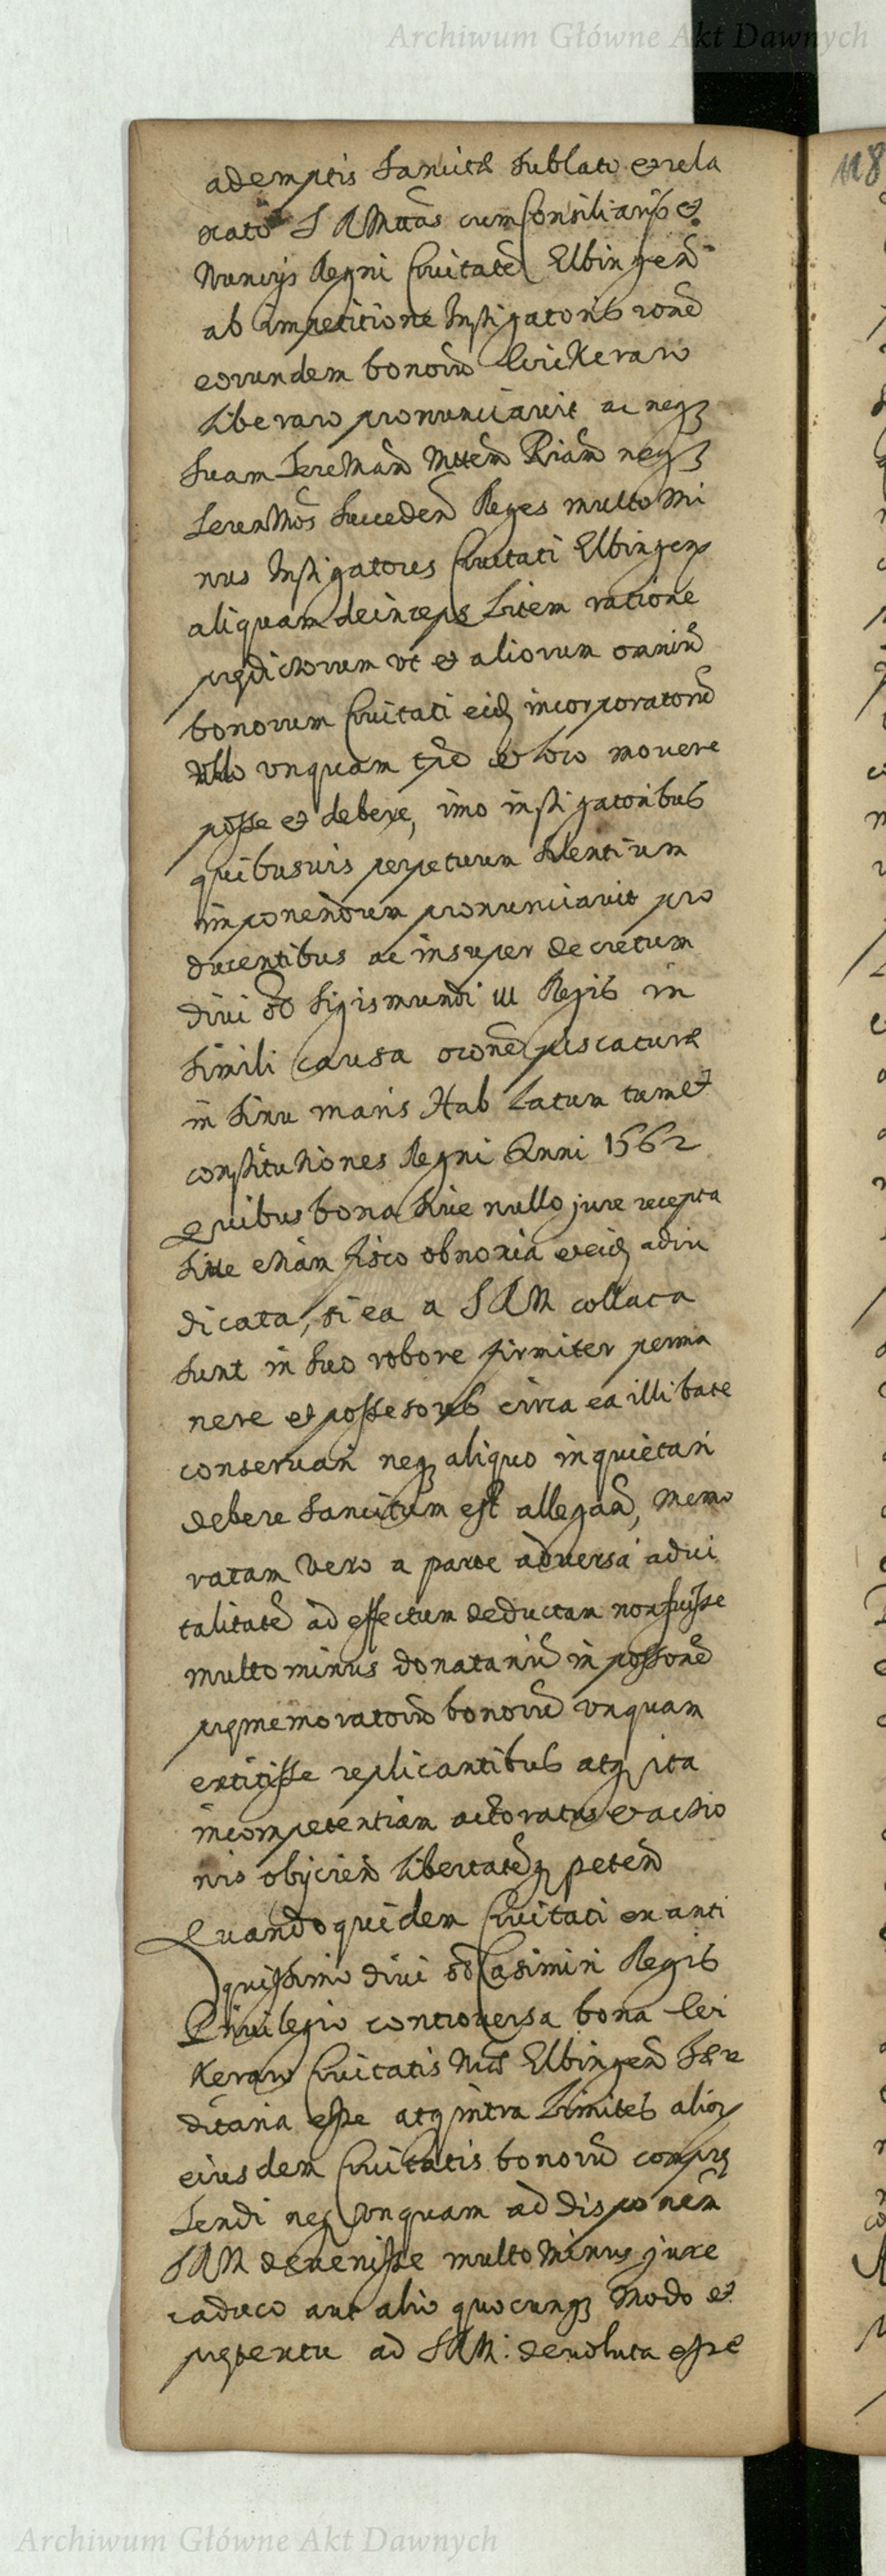 Archiwum Główne Akt Dawnych
118
ademptis sancita sublato et rela
xato S R Mttas cum Consiliarijs et
Nuncijs Regni Civitatē Elbingeñ
ab impetitione Instigatoris rōne
eorundem bonorū
liberam pronunciavit ac neqȝ
suam Mttem Riam neqȝ
Succedeñ Reges multo mi
nus Instigatores Civitati Elbingeñ
aliquam deinceps Litem ratione
prędictorum vt et aliorum omniū
bonorum Civitati eidȝ incorporatorū
vllo vnquam tpē et loco movere
posse et debere, imo instigatoribus
quibusvis perpetuum silentium
imponendum pronunciavit pro
ducentibus ac insuper decretum
divi Sigismundi III Regis in
simili causa piscaturæ
in sinu maris Hab Latum
constitutiones Regni Anni 1562
Quibus bona sive nullo jure recepta
sive etiam fisco obnoxia et eidȝ adiu
dicata, si ea a S R M collata
sunt in suo robore firmiter perma
nere et possessores circa ea illibate
conservari neqȝ aliquo inquietari
debere sancitum est allegañ, memo
ratam vero a parte adversa advi
talitatē ad effectum deductam non fuisse
multo minus donatariū in possonē
pręmemoratorū bonorū vnquam
extitisse replicantibus atqȝ ita
incompetentiam actoratus et actio
nis obijcieñ libertatēqȝ peteñ
Quandoquidem Civitati ex anti
quissimo divi Casimiri Regis
Privilegio controversa bona
Civitatis Elbingeñ hære
ditaria esse atqȝ intra Limites alior
eiusdem Civitatis bonorū comprę
hendi neqȝ vnquam ad disponēm
S R M devenisse multo minus jure
caduco aut alio quocunqȝ modo et
prętextu ad S R M: devoluta esse
Archiwum Główne Akt Dawnych